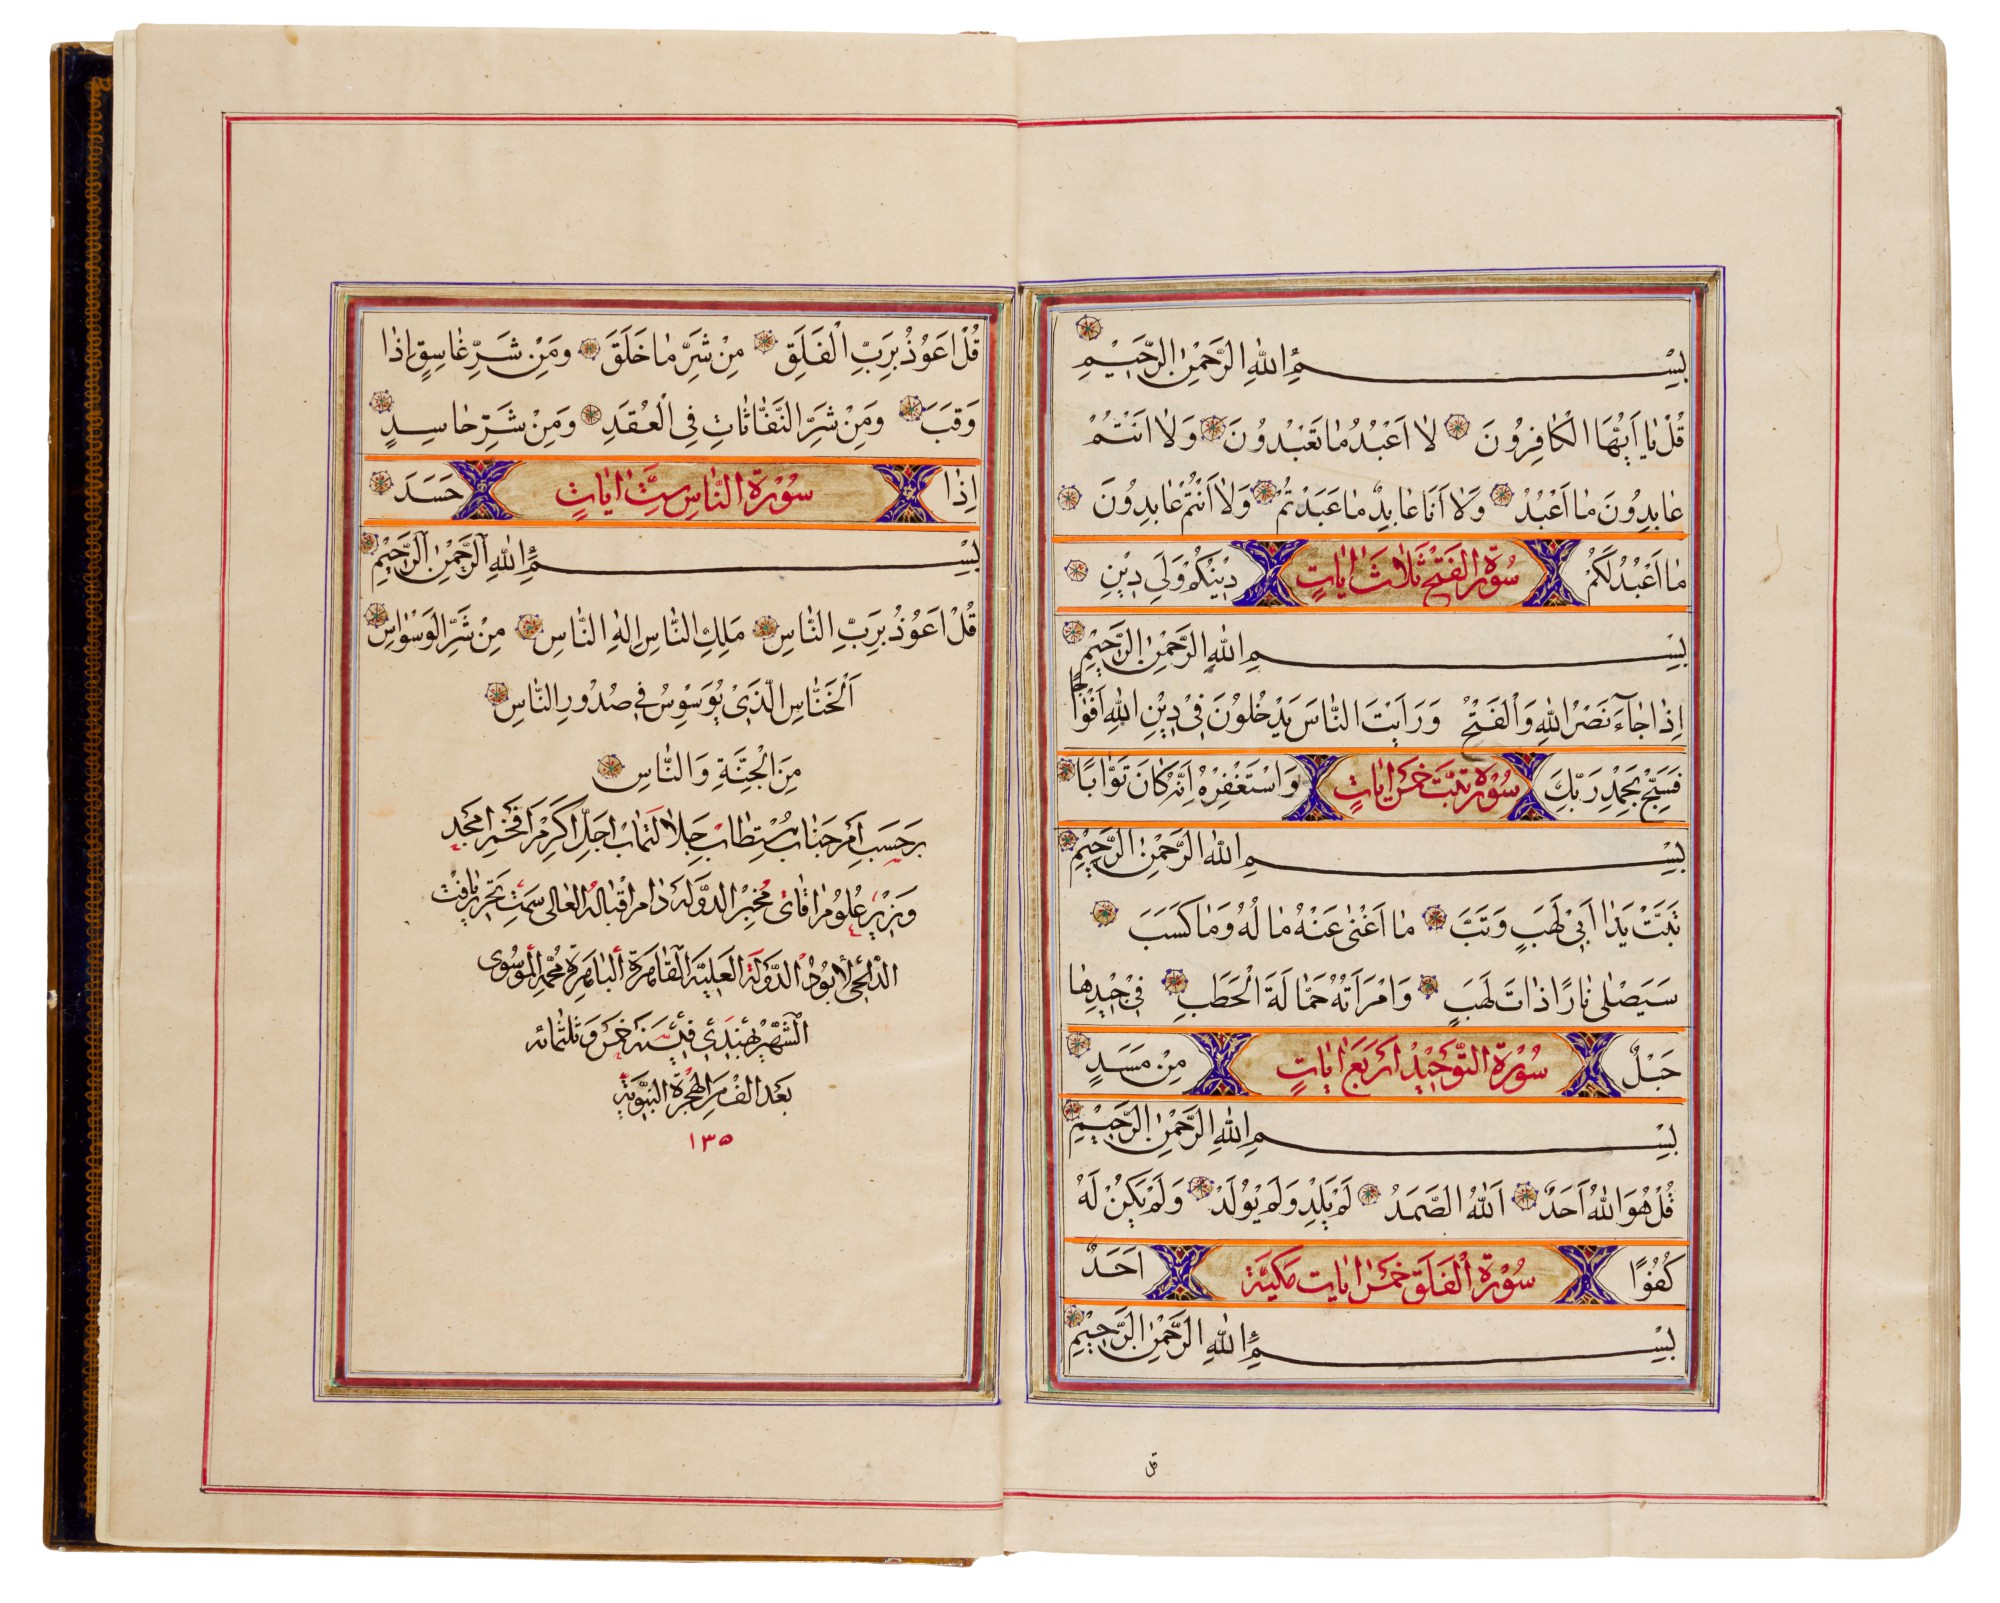 بِسْمِ اللّٰهِ الرَّحْمٰنِ الرَّحِیْمِ
قُلْ یٰا اَیُّهَا الْکٰافِرُونَ لٰا اَعْبُدُ مٰا تَعْبُدُونَ وَلٰا اَنْتُمْ
عٰابِدُونَ مٰا اَعْبُدُ وَلٰا اَنَا عٰابِدٌ مٰا عَبَدْتُمْ وَلٰا اَنْتُمْ عٰابِدُونَ
مٰا اَعْبُدُ لَکُمْ سُورَةُ الفَتْحِ ثَلٰاثَ اٰیٰاتٍ دِیْنُکُمْ وَلِیَ دِیْنِ
بِسْمِ اللّٰهِ الرَّحْمٰنِ الرَّحِیْمِ
اِذٰا جٰآءَ نَصْرُ اللّٰهِ وَالْفَتْحُ وَرَاَیْتَ النّٰاسَ یَدْخُلُونَ فِیْ دِیْنِ اللّٰهِ اَفْوٰاجًا
فَسَبِّحْ بِحَمْدِ رَبِّكَ سُوْرَة تَبَّتْ خَمْسَ اٰیٰاتٍ وَاسْتَغْفِرْهُ اِنَّهُ کٰانَ تَوّٰابًا
بِسْمِ اللّٰهِ الرَّحْمٰنِ الرَّحِیْمِ
تَبَّتْ یَدٰا اَبِیْ لَهَبٍ وَتَبَّ مٰا اَغْنیٰ عَنْهُ مٰا لُهُ وَمٰا کَسَبَ
سَیَصْلٰی نٰارًا ذٰاتَ لَهَبٍ وَامْرَاَتُهُ حَمّٰالَةَ الْحَطَبِ فِیْ جِیْدِهٰا
حَبْلٌ سُوْرَةُ التَّوْحِیْدِ اَرْبَعَ اٰیٰاتٍ مِنْ مَسَدٍ
بِسْمِ اللّٰهِ الرَّحْمٰنِ الرَّحِیْمِ
قُلْ هُوَ اللّٰهُ اَحَدٌ اَللّٰهُ الصَّمَدُ لَمْ یَلِدْ وَلَمْ یُوْلَدْ وَلَمْ یَکُنْ لَهُ
کُفُوًا سُوْرَةُ الْفَلَقِ خَمْسَ اٰیٰات مَکِیَّة اَحَدٌ
بِسْمِ اللّٰهِ الرَّحْمٰنِ الرَّحِیْمِ
قل
قُلْ اَعُوْذُ بِرَبِّ الْفَلَقِ مِنْ شَرِّ مٰا خَلَقَ وَمِنْ شَرِّ غٰاسِقٍ اِذٰا
وَقَبَ وَمِنْ شَرِّ النَّفّٰاثٰاتِ فِی الْعُقَدِ وَمِنْ شَرِّ حٰاسِدٍ
اِذٰا سُوْرَةُ النّٰاسِ سِتَّ اٰیٰاتٍ حَسَدَ
بِسْمِ اللّٰهِ الرَّحْمٰنِ الرَّحِیْمِ
قُلْ اَعُوْذُ بِرَبِّ النّٰاسِ مَلِكِ النّٰاسِ اِلٰهِ النّٰاسِ مِنْ شَرِّ الْوَسْوٰاسِ
اَلْخَنّٰاسِ الَّذِیْ یُوَسْوِسُ فِیْ صُدُورِ النّٰاسِ
مِنَ الْجِنَّةِ وَالنّٰاسِ
بر حسب امر جناب مستطاب جلالتماب اجل اکرم افخم امجد
وزیر علوم اقای مخبر الدوله دام اقباله العالی سمت تحریر یافت
الدولة العلیة القاهرة الباهرة محمد الموسوی
الشهیر فی سنه خمس و ثلثمائه
بعد الف من الهجرة النبویة
١٣٥